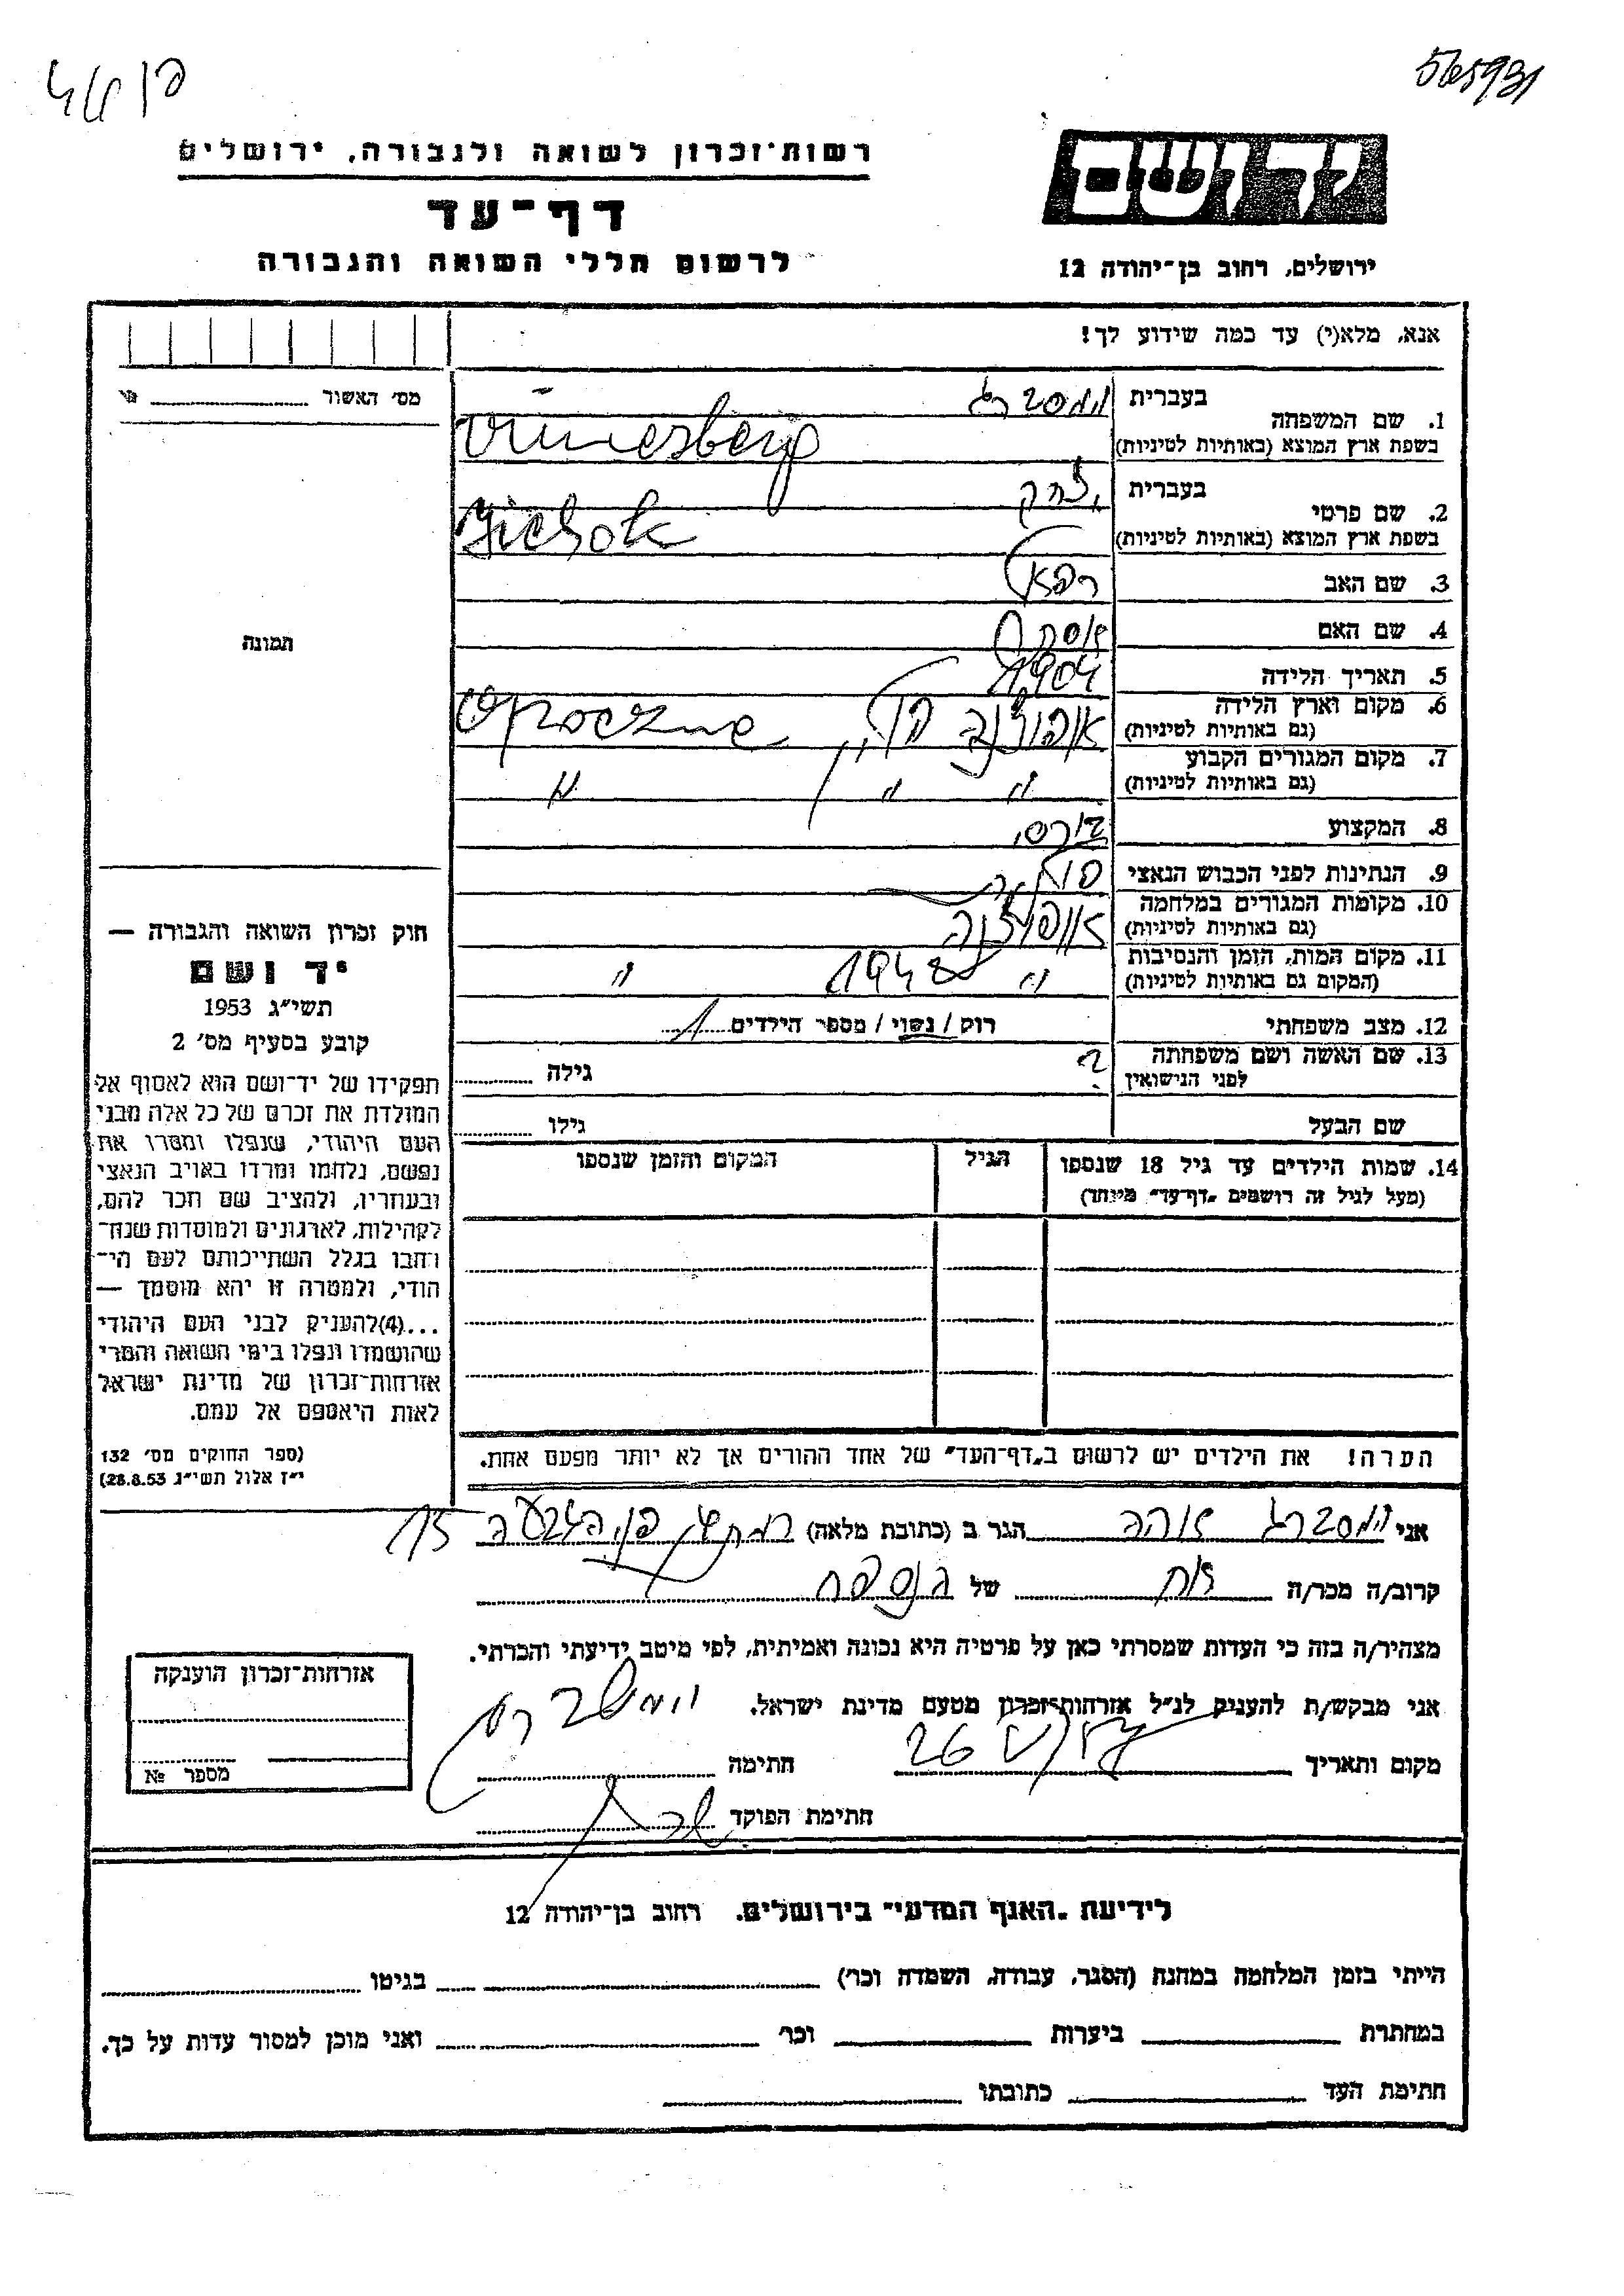 565931
רשות־זכרון לשואה ולגבורה, ירושלים
יד ושם
דף־עד
לרשום חללי השואה והגבורה
ירושלים, רחוב בן־יהודה 12
אנא, מלא(י) עד כמה שידוע לך!
מס׳ האשור
1. שם המשפחה
בעברית
בשפת ארץ המוצא (באותיות לטיניות)
2. שם פרטי
בעברית יצחק
בשפת ארץ המוצא (באותיות לטיניות)
3. שם האב רפאל
4. שם האם
5. תאריך הלידה 1904
6. מקום וארץ הלידה
(גם באותיות לטיניות) Opoczne
7. מקום המגורים הקבוע
(גם באותיות לטיניות) " " "
8. המקצוע
9. הנתינות לפני הכבוש הנאצי
10. מקומות המגורים במלחמה
(גם באותיות לטיניות)
11. מקום המות, הזמן והנסיבות
(המקום גם באותיות לטיניות) " "
12. מצב משפחתי רוק / נשוי / מספר הילדים 1
13. שם האשה ושם משפחתה
לפני הנישואין ? גילה
שם הבעל גילו
14. שמות הילדים עד גיל 18 שנספו הגיל המקום והזמן שנספו
(מעל לגיל זה רושמים „דף־עד״ מיוחד)
הערה! את הילדים יש לרשום ב„דף־העד״ של אחד ההורים אך לא יותר מפעם אחת.
תמונה
חוק זכרון השואה והגבורה —
יד ושם
תשי״ג 1953
קובע בסעיף מס׳ 2
תפקידו של יד־ושם הוא לאסוף אל
המולדת את זכרם של כל אלה מבני
העם היהודי, שנפלו ומסרו את
נפשם, נלחמו ומרדו באויב הנאצי
ובעוזריו, ולהציב שם וזכר להם,
לקהילות, לארגונים ולמוסדות שנח־
רחבו בגלל השתייכותם לעם הי־
הודי, ולמטרה זו יהא מוסמך —
...(4)להעניק לבני העם היהודי
שהושמדו ונפלו בימי השואה והמרי
אזרחות־זכרון של מדינת ישראל
לאות היאספם אל עמם.
(ספר החוקים מס׳ 132
י״ז אלול תשי״ג 28.8.53)
אני הגר ב (כתובת מלאה)
קרוב/ה מכר/ה אח של הנספה
מצהיר/ה בזה כי העדות שמסרתי כאן על פרטיה היא נכונה ואמיתית, לפי מיטב ידיעתי והכרתי.
אני מבקש/ת להעניק לנ״ל אזרחות־זכרון מטעם מדינת ישראל.
מקום ותאריך חתימה
חתימת הפוקד
אזרחות־זכרון הוענקה
מספר №
לידיעת „האגף המדעי״ בירושלים. רחוב בן־יהודה 12
הייתי בזמן המלחמה במחנה (הסגר, עבודה, השמדה וכר׳) בגיטו
במחתרת ביערות וכר׳ ואני מוכן למסור עדות על כך.
חתימת העד כתובתו